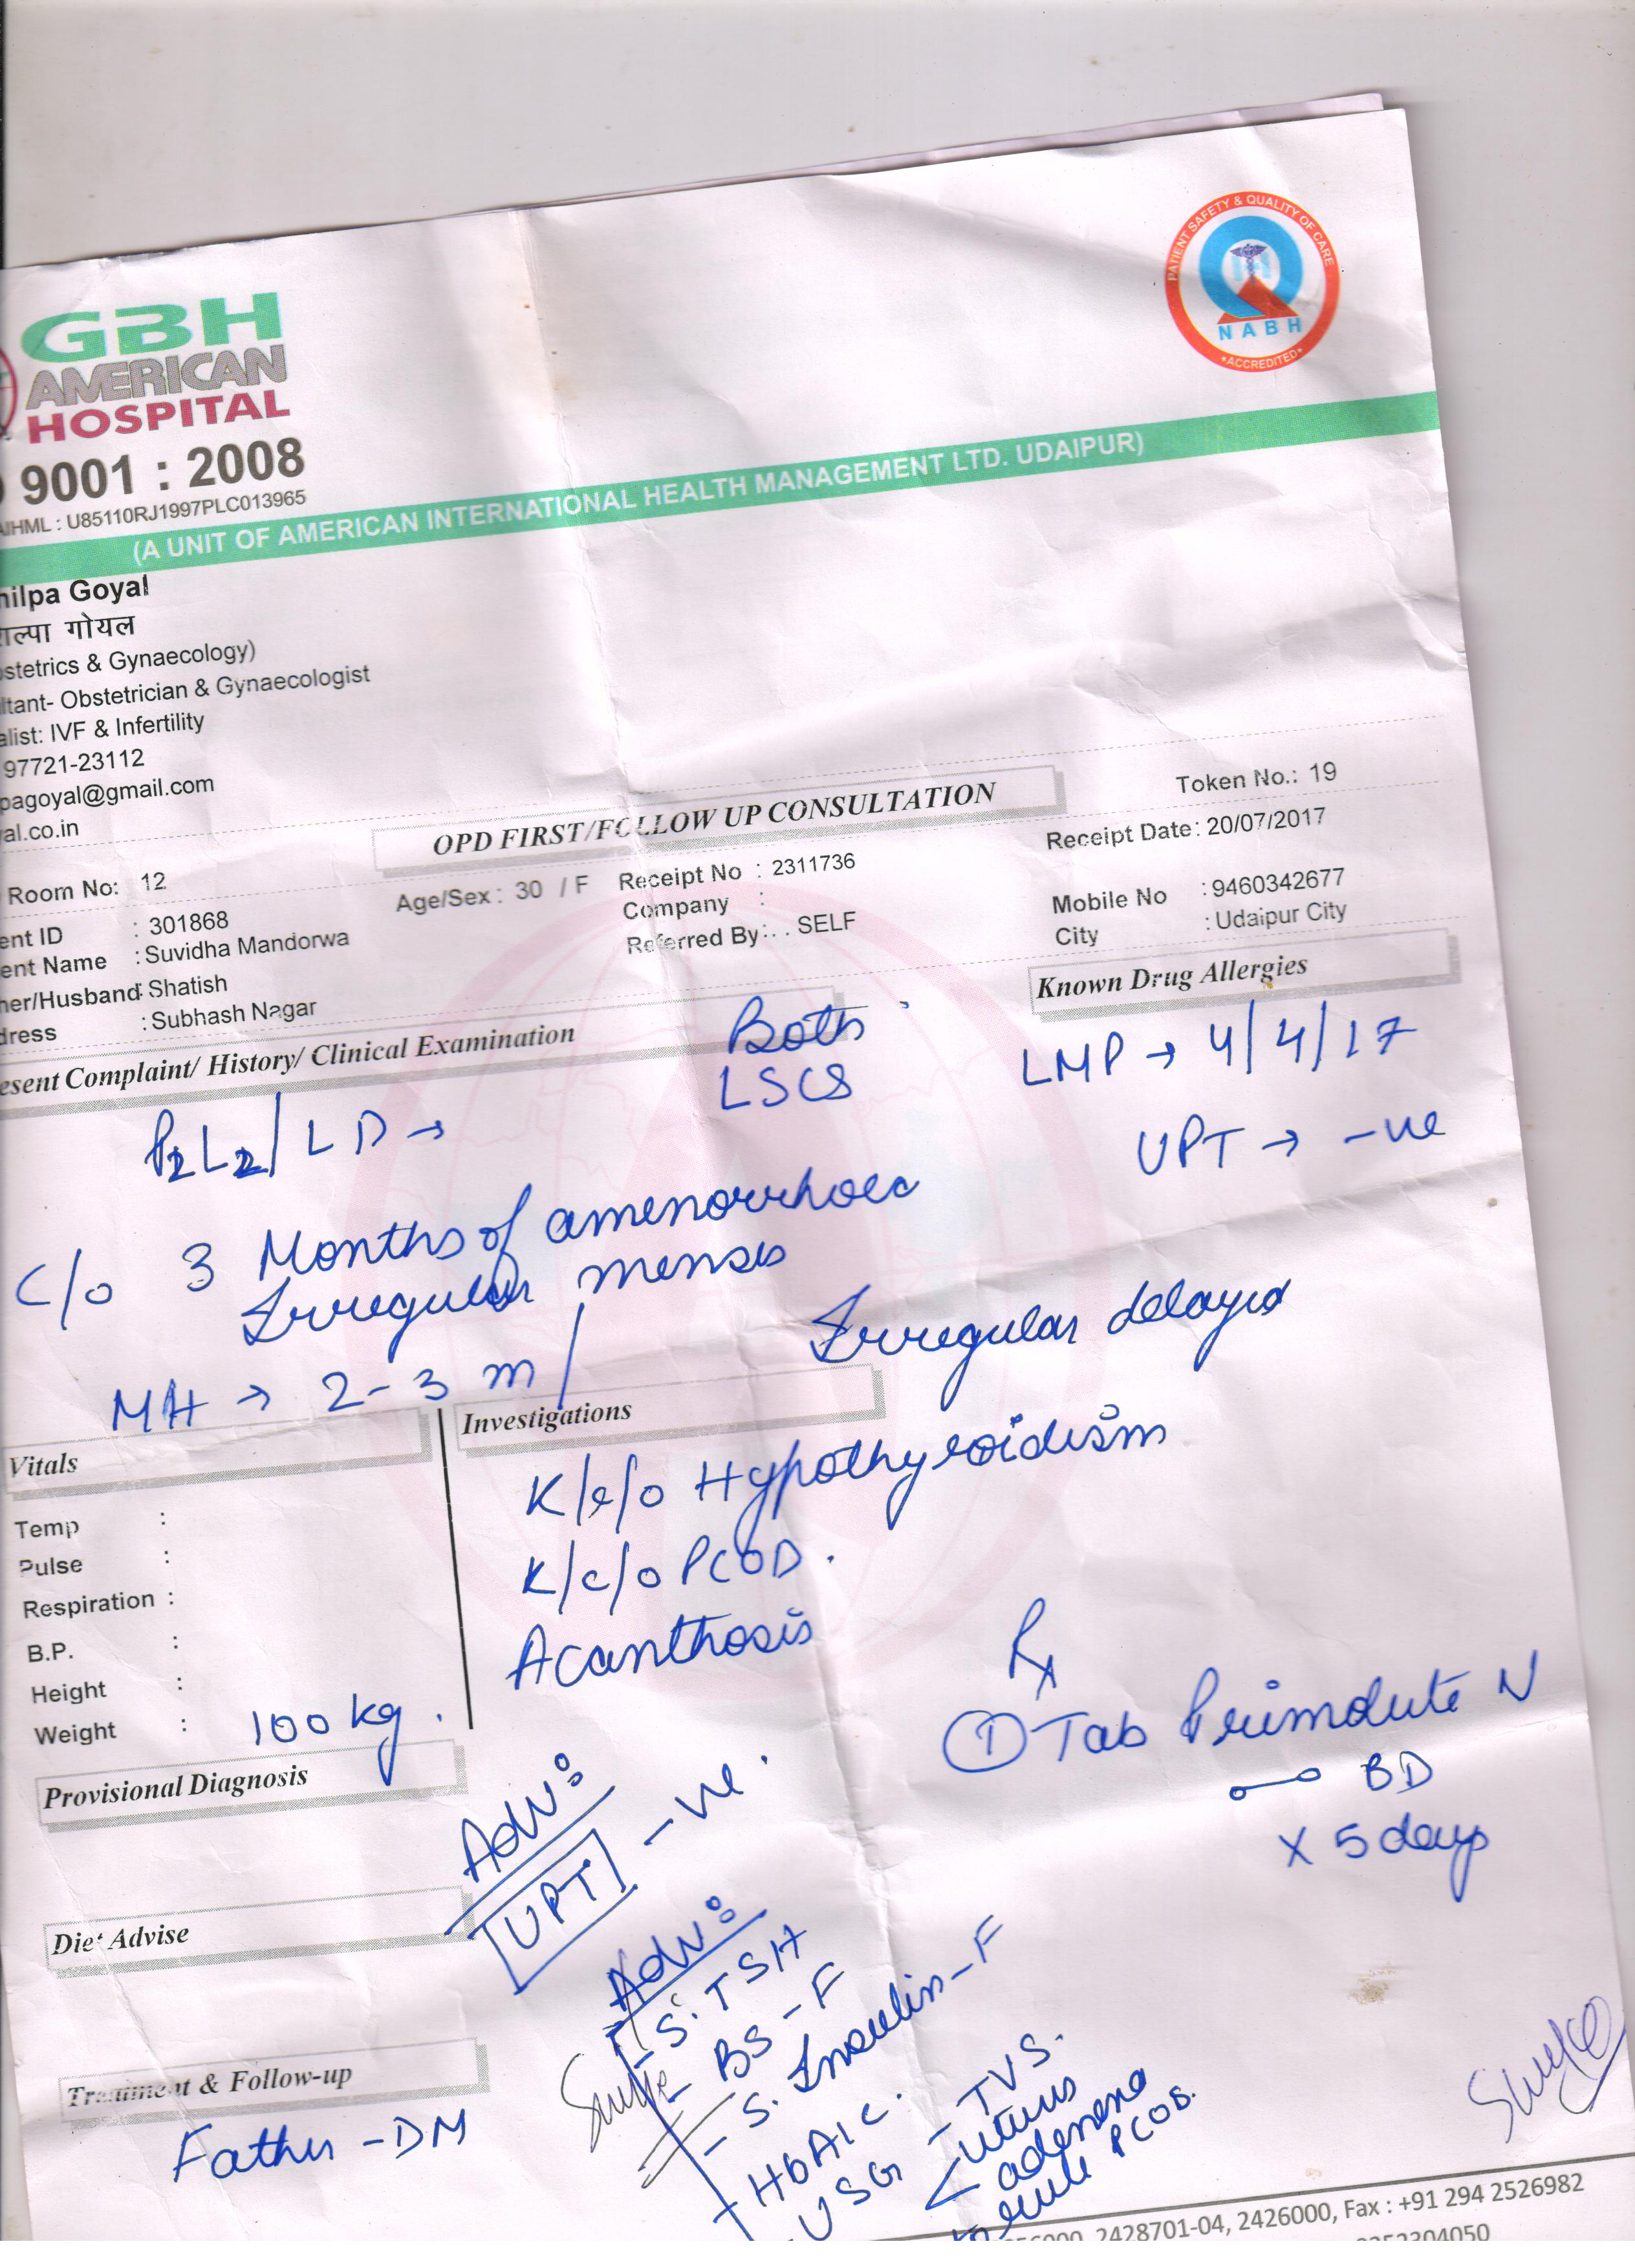 PATIENT SAFETY & QUALITY OF CARE
NABH
*ACCREDITED*
GBH
AMERICAN
HOSPITAL
9001 : 2008
AIHML : U85110RJ1997PLC013965
(A UNIT OF AMERICAN INTERNATIONAL HEALTH MANAGEMENT LTD. UDAIPUR)
hilpa Goyal
ाल्पा गोयल
ostetrics & Gynaecology)
ltant- Obstetrician & Gynaecologist
alist: IVF & Infertility
97721-23112
pagoyal@gmail.com
al.co.in
OPD FIRST/FOLLOW UP CONSULTATION
Token No.: 19
Room No: 12
Age/Sex : 30 / F
Receipt No : 2311736
Receipt Date: 20/07/2017
ent ID : 301868
Company :
Mobile No : 9460342677
ent Name : Suvidha Mandorwa
Referred By: . . SELF
City : Udaipur City
her/Husband: Shatish
dress : Subhash Nagar
Known Drug Allergies
esent Complaint/ History/ Clinical Examination
Both
LSCS
LMP → 4/4/17
P2L2/LD →
UPT → -ve
C/o 3 Months of amenorrhoea
Irregular menses
MH → 2-3 m/
Irregular delayed
Vitals
Investigations
Temp :
Pulse :
Respiration :
B.P. :
Height :
Weight : 100 kg.
K/c/o Hypothyroidism
K/c/o PCOD.
Acanthosis
Rx
① Tab Primolute N
BD
x 5 days
Provisional Diagnosis
Adv:
UPT -ve.
Diet Advise
Adv:
- S. TSH
- BS - F
- S. Insulin - F
- HbA1c.
- USG - TVS.
uterus
adenexa
PCOD.
Treatment & Follow-up
Father - DM
2428701-04, 2426000, Fax : +91 294 2526982